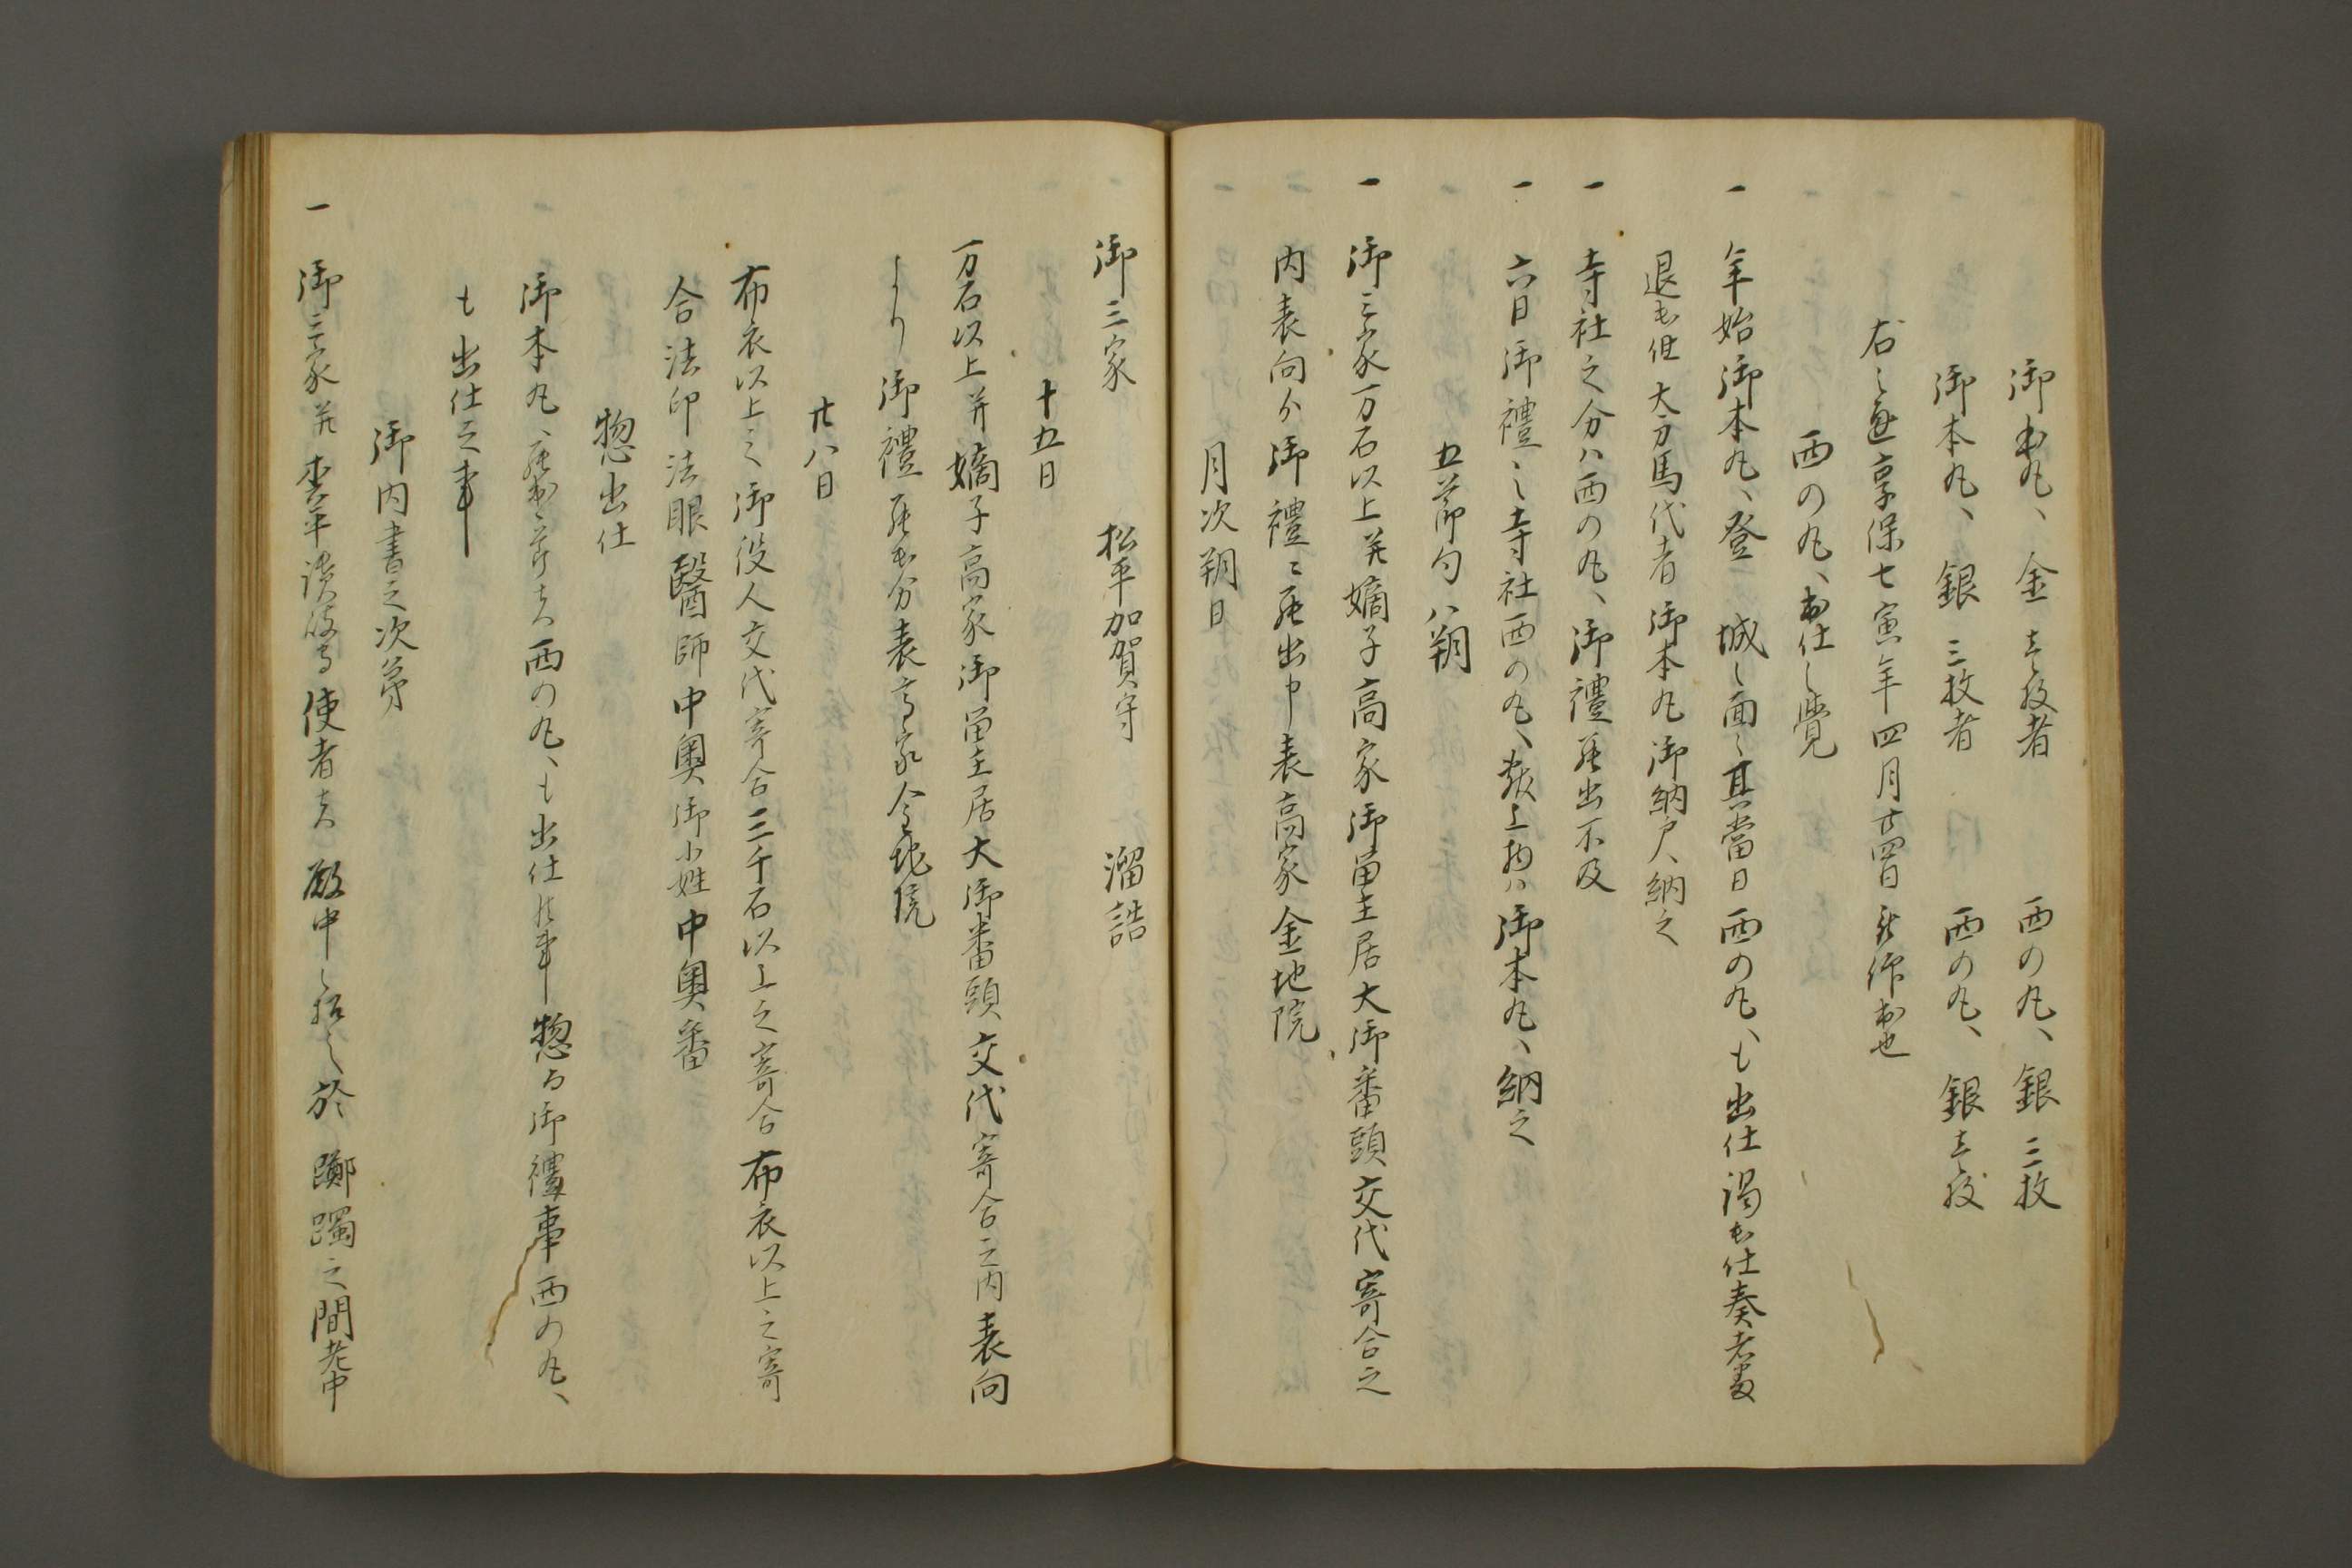 御本丸へ 金壱枚者 西の丸へ 銀三枚
御本丸へ 銀三枚者 西の丸へ 銀壱枚
右之通享保七寅年四月廿四日被仰出也
西の丸へ出仕之覚
一 年始御本丸へ登 城之面々其當日西の丸へも出仕謁出仕奏者
退出但大刀馬代者御本丸御納戸へ納之
一 寺社之分ハ西の丸へ御禮罷出不及
一 六日御禮之寺社西の丸へ献上物ハ御本丸へ納之
五節句 八朔
一 御三家万石以上并嫡子高家御留主居大御番頭交代寄合之
内表向ゟ御禮ニ罷出申表高家金地院
月次朔日
御三家 松平加賀守 溜詰
十五日
万石以上并嫡子高家御留主居大御番頭交代寄合之内表向
より御禮罷出分表高家金地院
廿八日
布衣以上之御役人交代寄合三千石以上之寄合布衣以上之寄
合法印法眼醫師中奥御小姓中奥番
惣出仕
御本丸へ罷出候節者西の丸へも出仕候事惣而御禮事西の丸へ
も出仕之事
御内書之次第
一 御三家并松平讃岐守使者者殿中之招之於躑躅之間老中